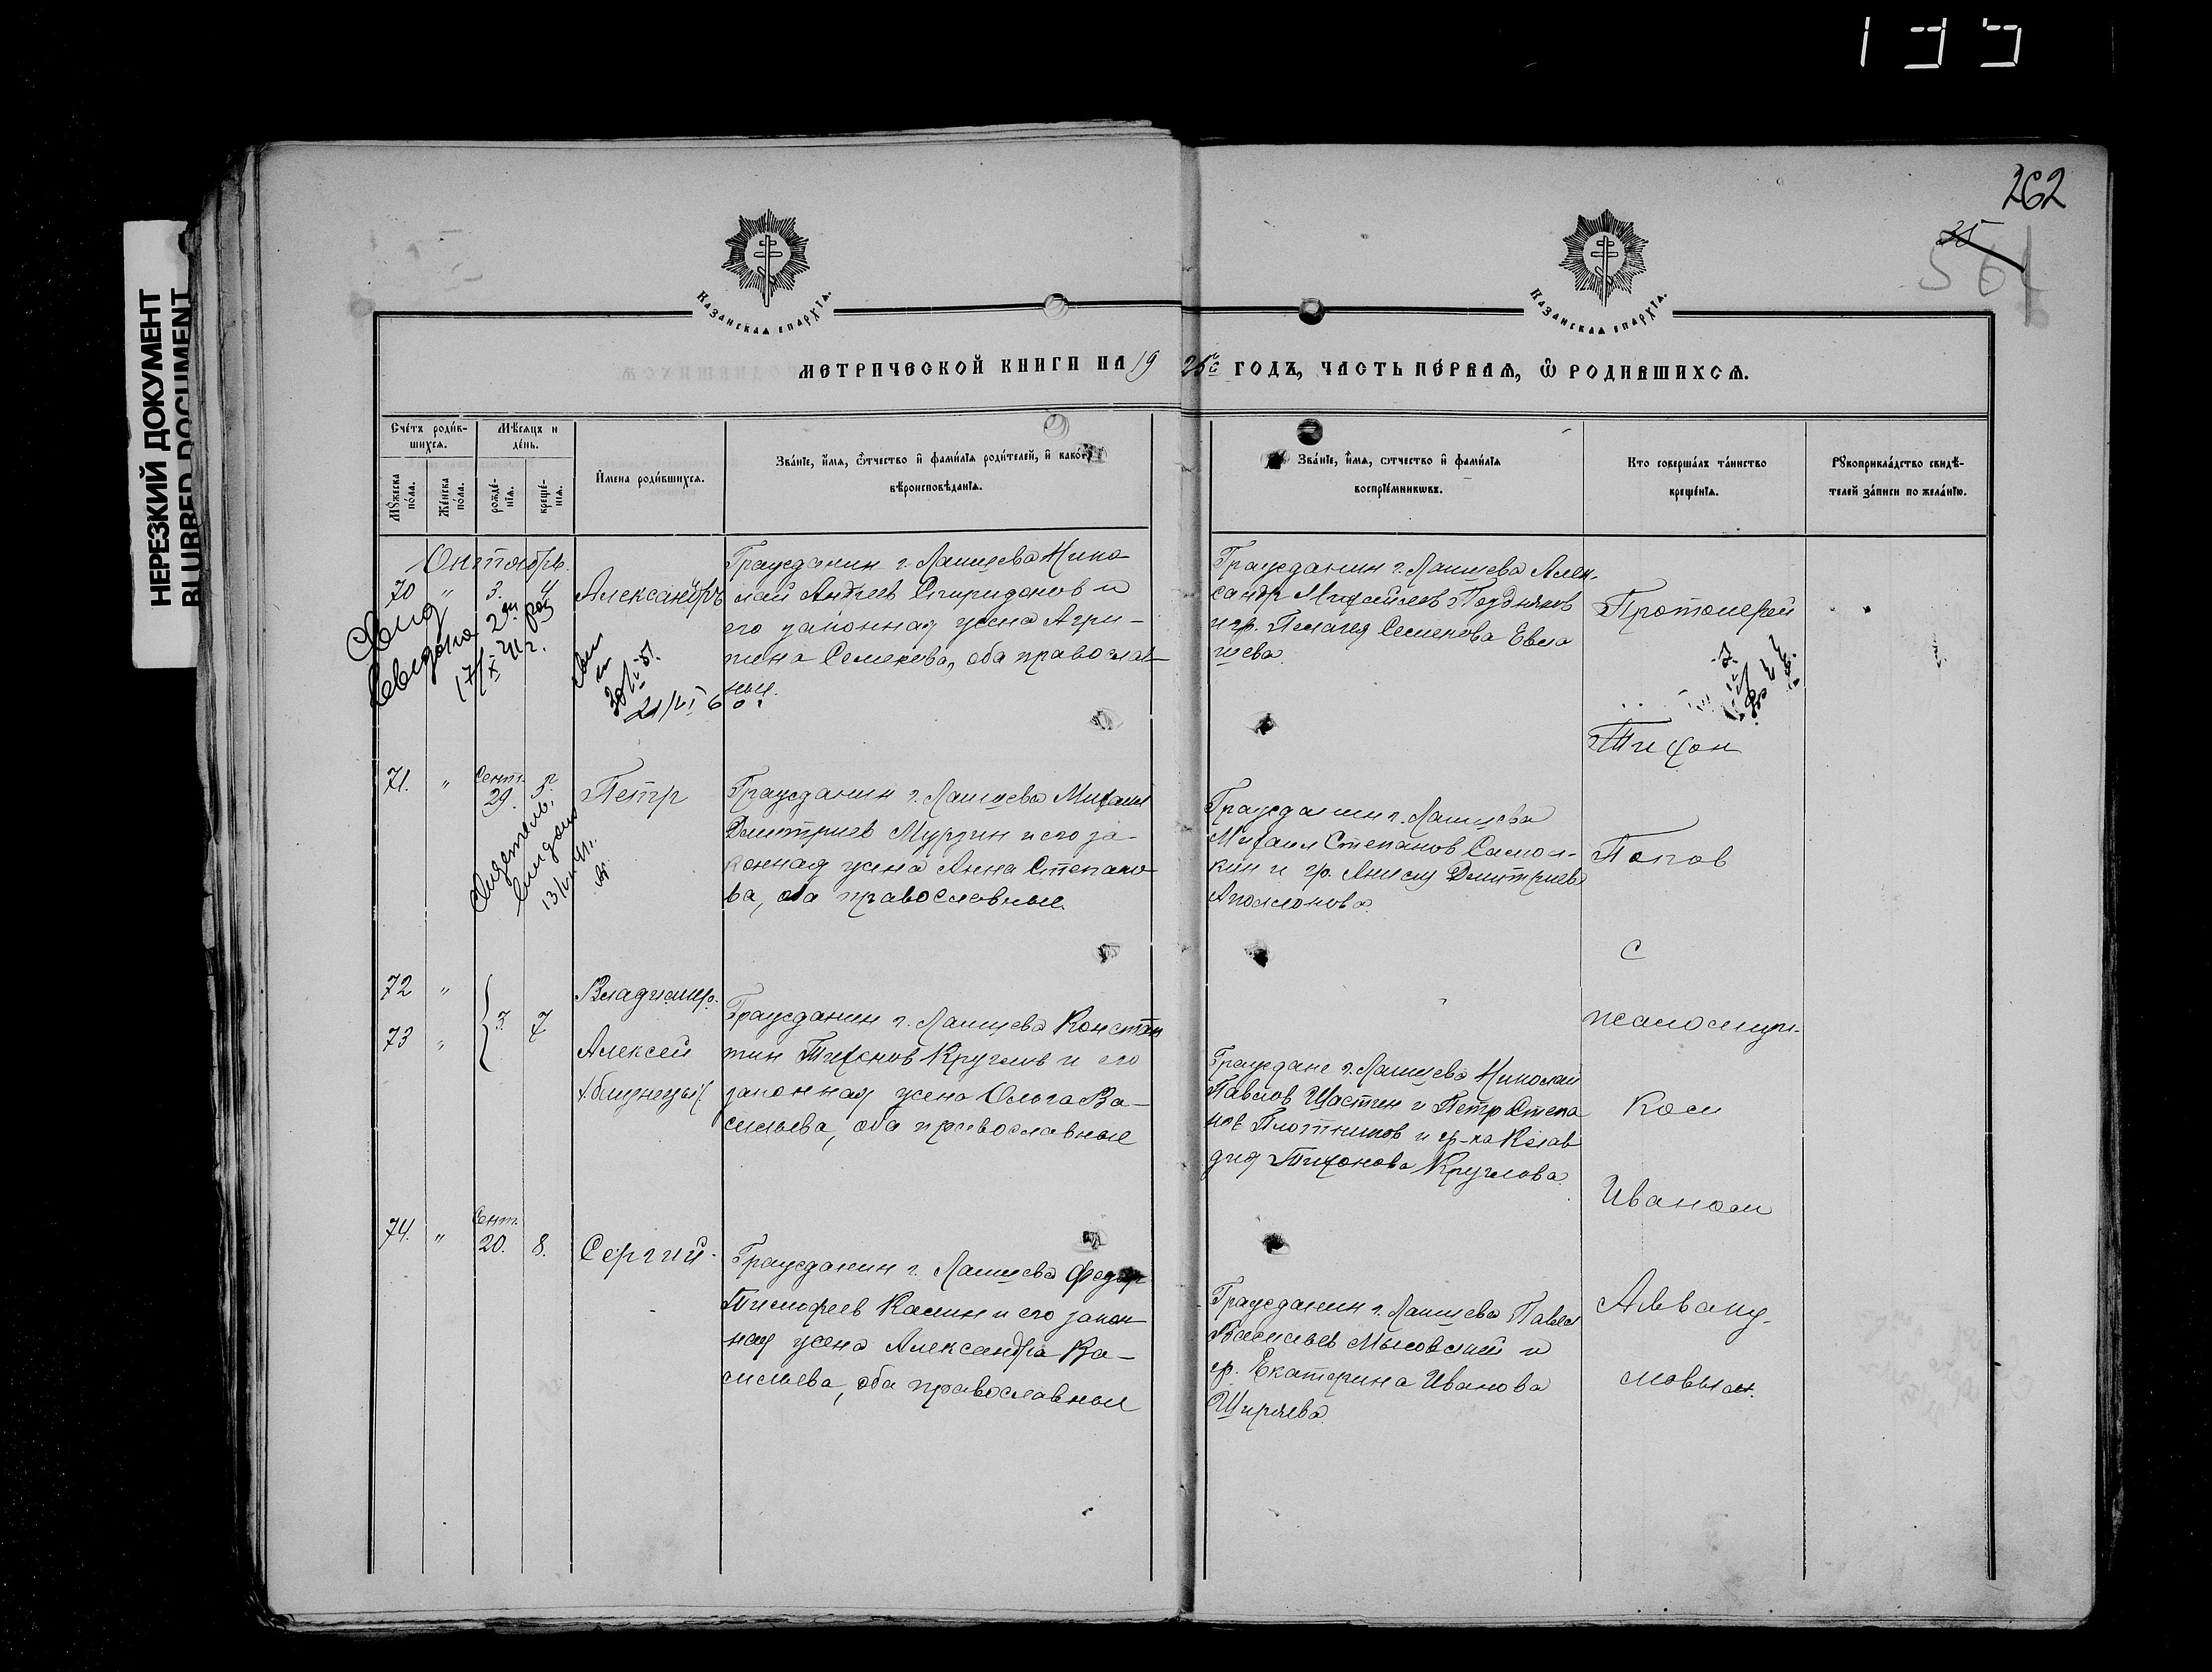 135
262
25
561
НЕРЕЗКИЙ ДОКУМЕНТ
BLURRED DOCUMENT
Казанская епархїа.
Казанская епархїа.
Метрической книги на 1926 г. годъ, часть первая, ѡ родившихся.
Счетъ родив-
шихся.
Мужеска пола.
Женска пола.
Мѣсяцъ и
день.
рожде-
нїя.
креще-
нїя.
Имена родившихся.
Званїе, имя, отчество и фамилїя родителей, и какого
вѣроисповѣданїя.
Званїе, имя, отчество и фамилїя
воспрїемниковъ.
Кто совершалъ таинство
крещенїя.
Рукоприкладство свидѣ-
телей записи по желанїю.
Октябрь.
70 " 3. 4 Александръ
Гражданин г. Лаишева Нико-
лай Андреев Спиридонов и
его законная жена Агри-
пина Семенова, оба православ-
ные.
Гражданин г. Лаишева Алек-
сандр Михайлов Поздняков
и гр. Пелагея Семенова Евла
шева.
Протоиерей
Тихон
71. " Сент. 29. 5. Петр
Гражданин г. Лаишева Михаил
Дмитриев Мурзин и его за-
конная жена Анна Степано-
ва, оба православные.
Гражданин г. Лаишева
Михаил Степанов Самол-
кин и гр. Анисия Дмитриева
Аполлонова.
Попов
с
псаломщи-
ком
Иваном
72 " Владимир.
73 " 3. 7 Алексей
/близнецы/.
Гражданин г. Лаишева Констан
тин Тихонов Круглов и его
законная жена Ольга Ва-
сильева, оба православные
Граждане г. Лаишева Николай
Павлов Щастин и Петр Степа
нов Плотников и гр-ка Клав
дия Тихонова Круглова.
74. " Сент. 20. 8. Сергий.
Гражданин г. Лаишева Федор
Тимофеев Камин и его закон-
ная жена Александра Ва-
сильева, оба православные
Гражданин г. Лаишева Павел
Васильев Мысовский и
гр. Екатерина Иванова
Ширяева.